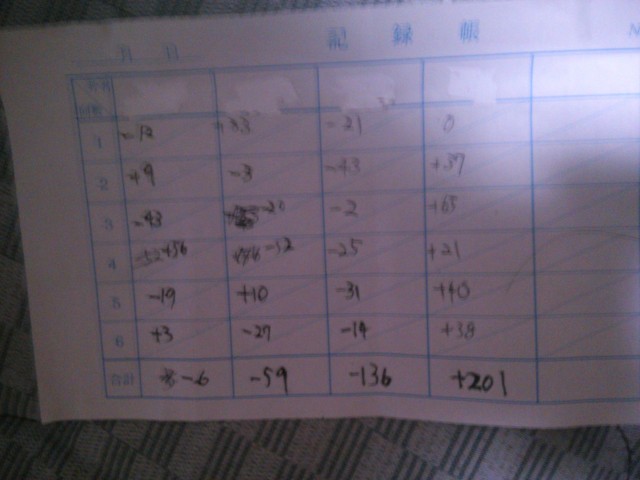 月 日 記録帳
1 -12 +33 -21 0
2 +9 -3 -43 +37
3 -43 -20 -2 +65
4 +56 -52 -25 +21
5 -19 +10 -31 +40
6 +3 -27 -14 +38
合計 -6 -59 -136 +201